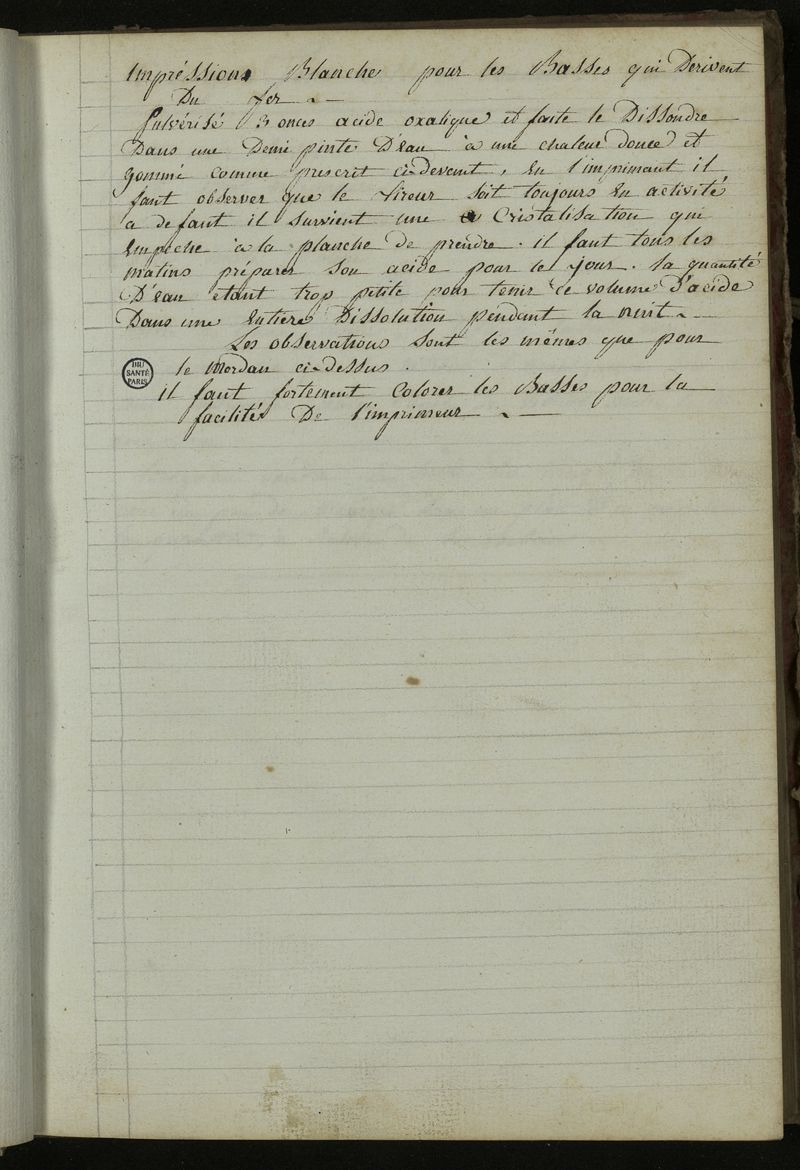 Impréssions Blanche pour les Basses qui Derivent
Du fer. —
Pulvérisé 3 onces acide oxalique et faite le Dissoudre
Dans une Demi pinte D'eau à une chaleur douce et
gommé comme prescrit ci-devent, En l'imprimant il
faut observer que le tireur soit toujours En activité
a defaut il survient une Cristalisation qui
Empeche à la planche de prendre. il faut tous les
matins préparer son acide pour le jour. la quantité
D'eau etant trop petite pour tenir ce volume D'acide
Dans une Entiere Dissolution pendant la nuit. —
Les observations sont les mêmes que pour
le mordan ci-dessus.
il faut fortement Colorer les Basses pour la
facilité De l'imprimeur. —
BIU
SANTÉ
PARIS